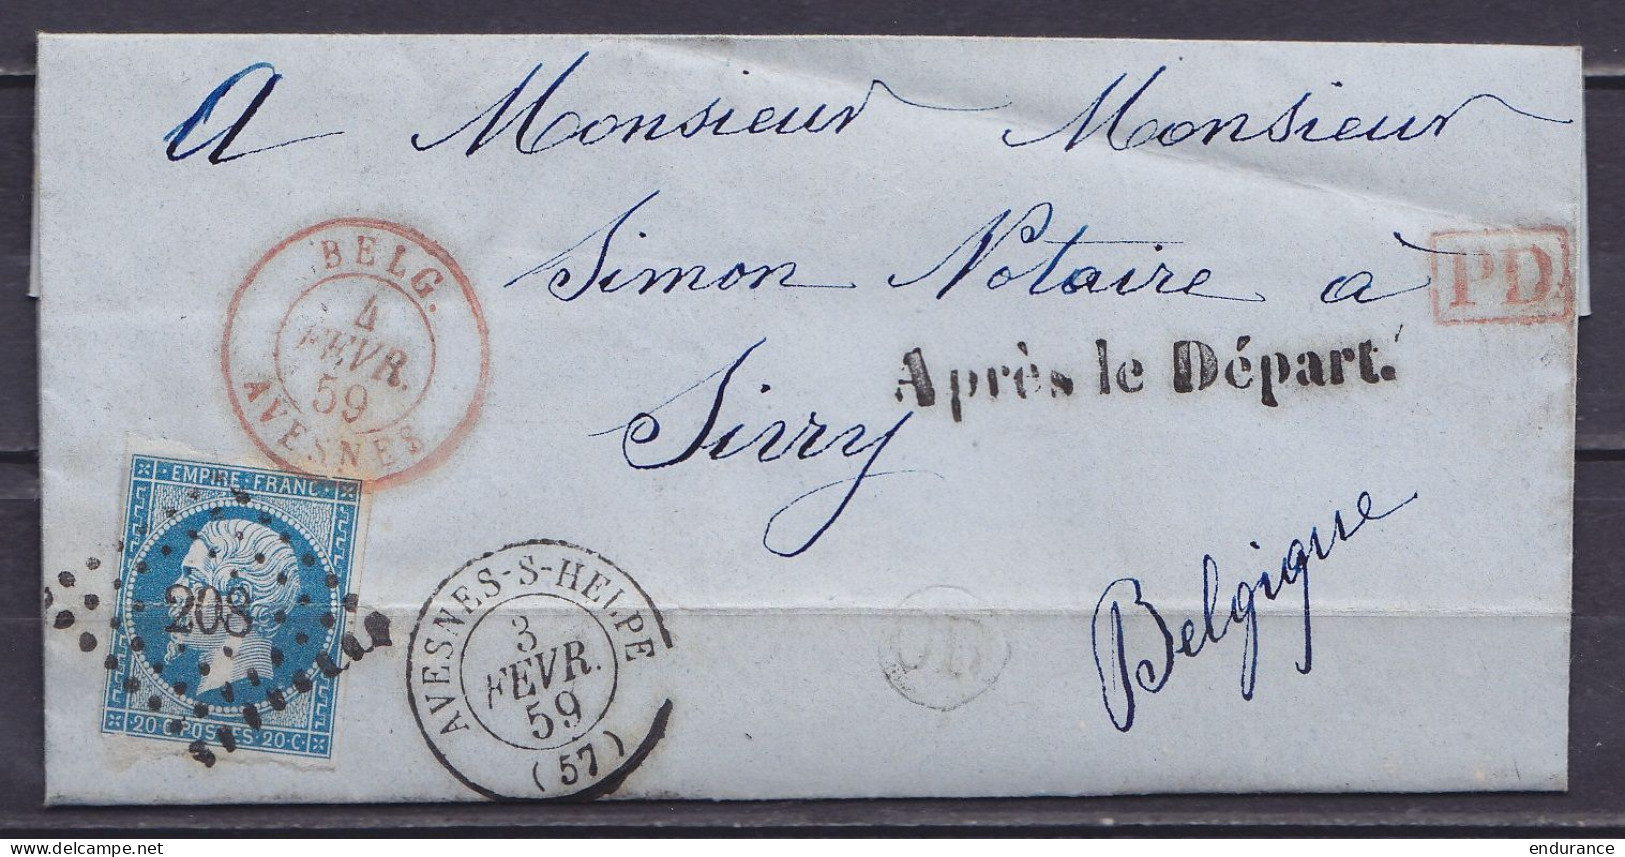 A Monsieur Monsieur
Simon Notaire à
Sivry
Belgique
PD
Après le Départ.
BELG.
4
FEVR.
59
AVESNES
EMPIRE·FRANC·
208
20·C·POSTES·20·C·
AVESNES-S-HELPE
3
FEVR.
59
(57)
OD
delcampe.net
endurance